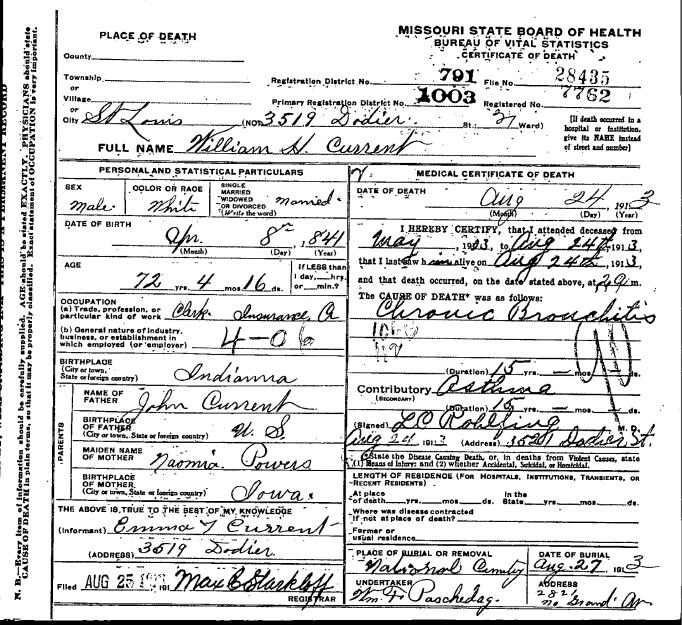 MISSOURI STATE BOARD OF HEALTH
BUREAU OF VITAL STATISTICS
CERTIFICATE OF DEATH
PLACE OF DEATH
County
Township
or
Village
or
City St Louis (NO. 3519 Dodier. St.; 21 Ward)
Registration District No. 791 File No. 28435
Primary Registration District No. 1003 Registered No. 7762
[If death occurred in a
hospital or institution,
give its NAME instead
of street and number]
FULL NAME William H. Current
PERSONAL AND STATISTICAL PARTICULARS
SEX
Male
COLOR OR RACE
White
SINGLE
MARRIED
WIDOWED
OR DIVORCED
(Write the word)
Married
DATE OF BIRTH
Apr. 8th, 1841
(Month) (Day) (Year)
AGE
72 yrs. 4 mos. 16 ds.
If LESS than
1 day, hrs.
or min.?
OCCUPATION
(a) Trade, profession, or
particular kind of work Clerk Insurance
(b) General nature of industry,
business, or establishment in
which employed (or employer)
BIRTHPLACE
(City or town,
State or foreign country)
Indianna
PARENTS
NAME OF
FATHER
John Current
BIRTHPLACE
OF FATHER
(City or town, State or foreign country)
U. S.
MAIDEN NAME
OF MOTHER
Naomia Powers
BIRTHPLACE
OF MOTHER
(City or town, State or foreign country)
Iowa.
THE ABOVE IS TRUE TO THE BEST OF MY KNOWLEDGE
(Informant) Emma Current
(ADDRESS) 3519 Dodier.
Filed AUG 25 191 Max C Starkloff
REGISTRAR
MEDICAL CERTIFICATE OF DEATH
DATE OF DEATH
Aug 24, 1913
(Month) (Day) (Year)
I HEREBY CERTIFY, that I attended deceased from
May, 1913, to Aug 24th 1913,
that I last saw him alive on Aug 24th 1913,
and that death occurred, on the date stated above, at m.
The CAUSE OF DEATH* was as follows:
Chronic Bronchitis
(Duration) 15 yrs. — mos. — ds.
Contributory Asthma
(SECONDARY)
(Duration) 15 yrs. — mos. — ds.
(Signed) L C Rohlfing M. D.
Aug 24 1913 (Address) Dodier St.
*State the Disease Causing Death, or, in deaths from Violent Causes, state
(1) Means of Injury; and (2) whether Accidental, Suicidal, or Homicidal.
LENGTH OF RESIDENCE (FOR HOSPITALS, INSTITUTIONS, TRANSIENTS, OR
RECENT RESIDENTS)
At place
of death yrs. mos. ds.
In the
State yrs. mos. ds.
Where was disease contracted
If not at place of death?
Former or
usual residence
PLACE OF BURIAL OR REMOVAL
National Cemetery
DATE OF BURIAL
Aug. 27 1913
UNDERTAKER
Wm. F. Paschedag.
ADDRESS
No Grand Av
N. B.—Every item of information should be carefully supplied. AGE should be stated EXACTLY. PHYSICIANS should state
CAUSE OF DEATH in plain terms, so that it may be properly classified. Exact statement of OCCUPATION is very important.